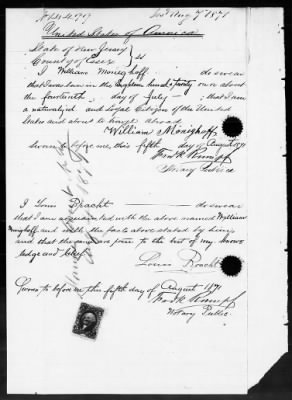 United States of America
State of New Jersey
County of Essex } ss
I William Monighoff do swear
that I was born in
the fourteenth day of July that I am
a naturalized and loyal Citizen of the United
States and about to travel abroad.
William Monighoff
Sworn to before me, this fifth day of August 1871
Fredk Rumpf
Notary Public
I Louis Bracht do swear
that I am acquainted with the above named William
Monighoff, and with the facts above stated by him
and that the same are true to the best of my know
ledge and belief
Louis Bracht
Sworn to before me this fifth day of August 1871
Fredk Rumpf
Notary Public